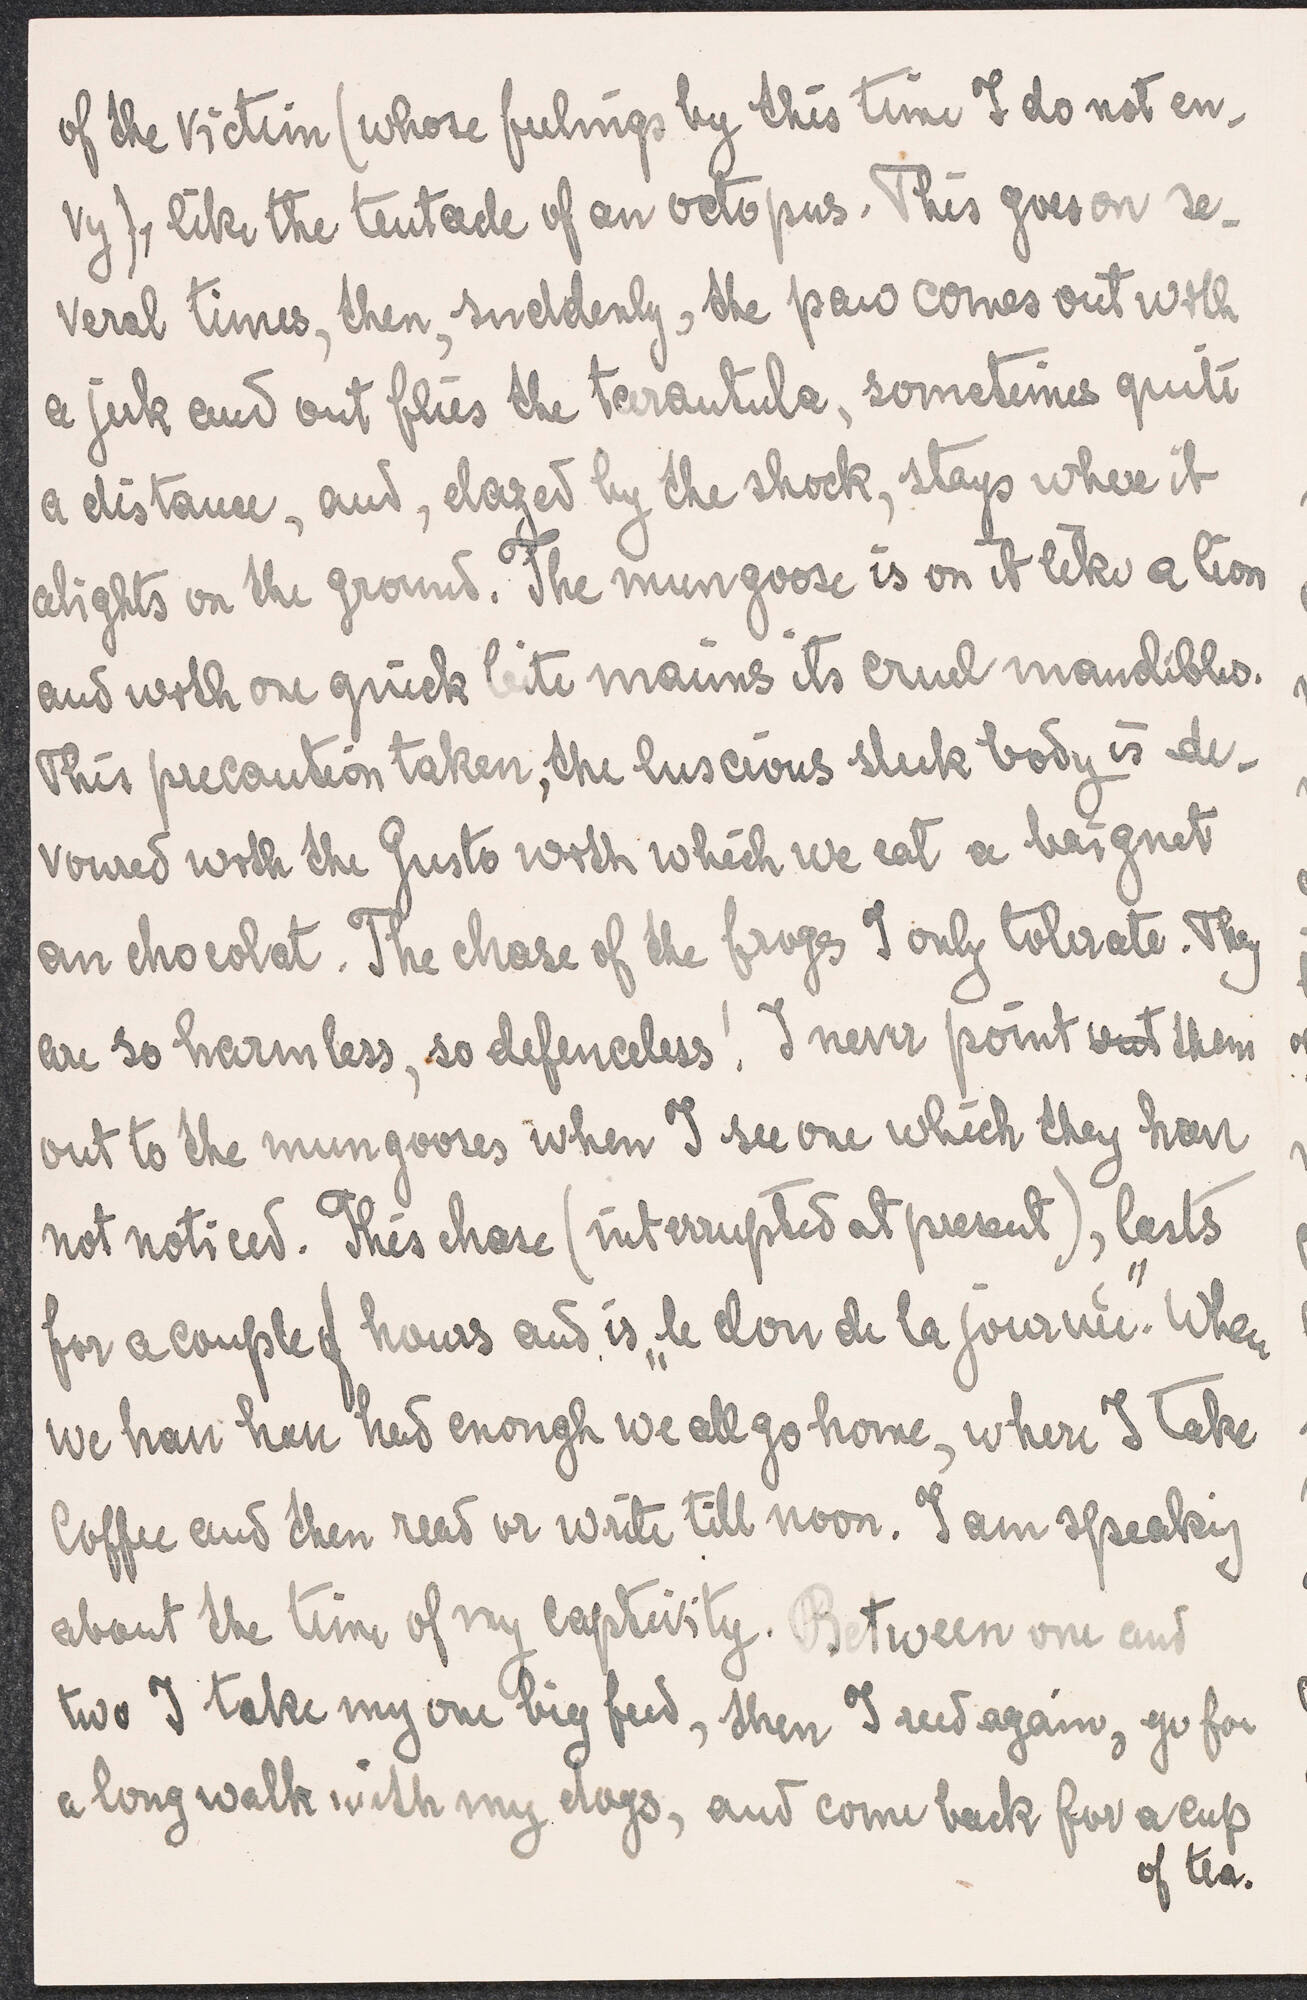 of the victim (whose feelings by this time I do not en-
vy), like the tentacle of an octopus. This goes on se-
veral times, then, suddenly, the paw comes out with
a jerk and out flies the tarantula, sometimes quite
a distance, and, dazed by the shock, stays where it
alights on the ground. The mungoose is on it like a lion
and with one quick bite maims its cruel mandibles.
This precaution taken, the luscious sleek body is de-
voured with the gusto with which we eat a beignet
au chocolat. The chase of the frogs I only tolerate. They
are so harmless, so defenceless! I never point out them
out to the mungooses when I see one which they have
not noticed. This chase (interrupted at present), lasts
for a couple of hours and is „le clou de la journée". When
we have have had enough we all go home, where I take
Coffee and then read or write till noon. I am speaking
about the time of my captivity. Between one and
two I take my one big feed, then I read again, go for
a long walk with my dogs, and come back for a cup
of tea.